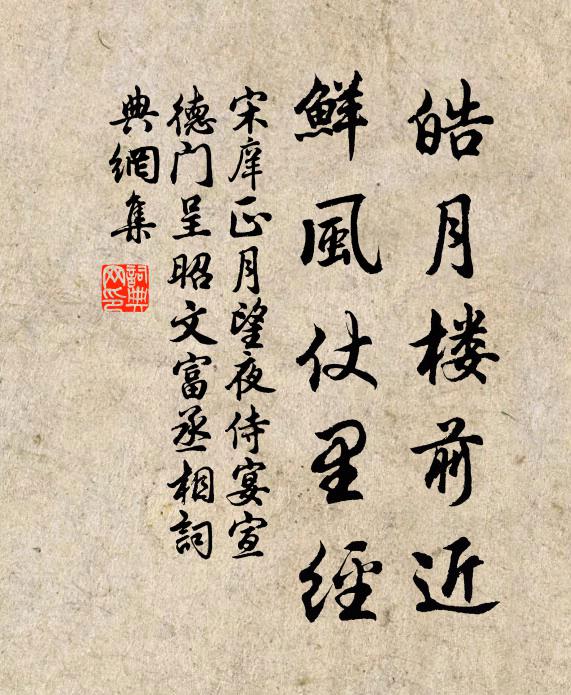 皓月楼前近
鮮風仗里経
宋庠正月望夜侍宴宣
德门呈昭文富丞相詞
典網集
詞典网印